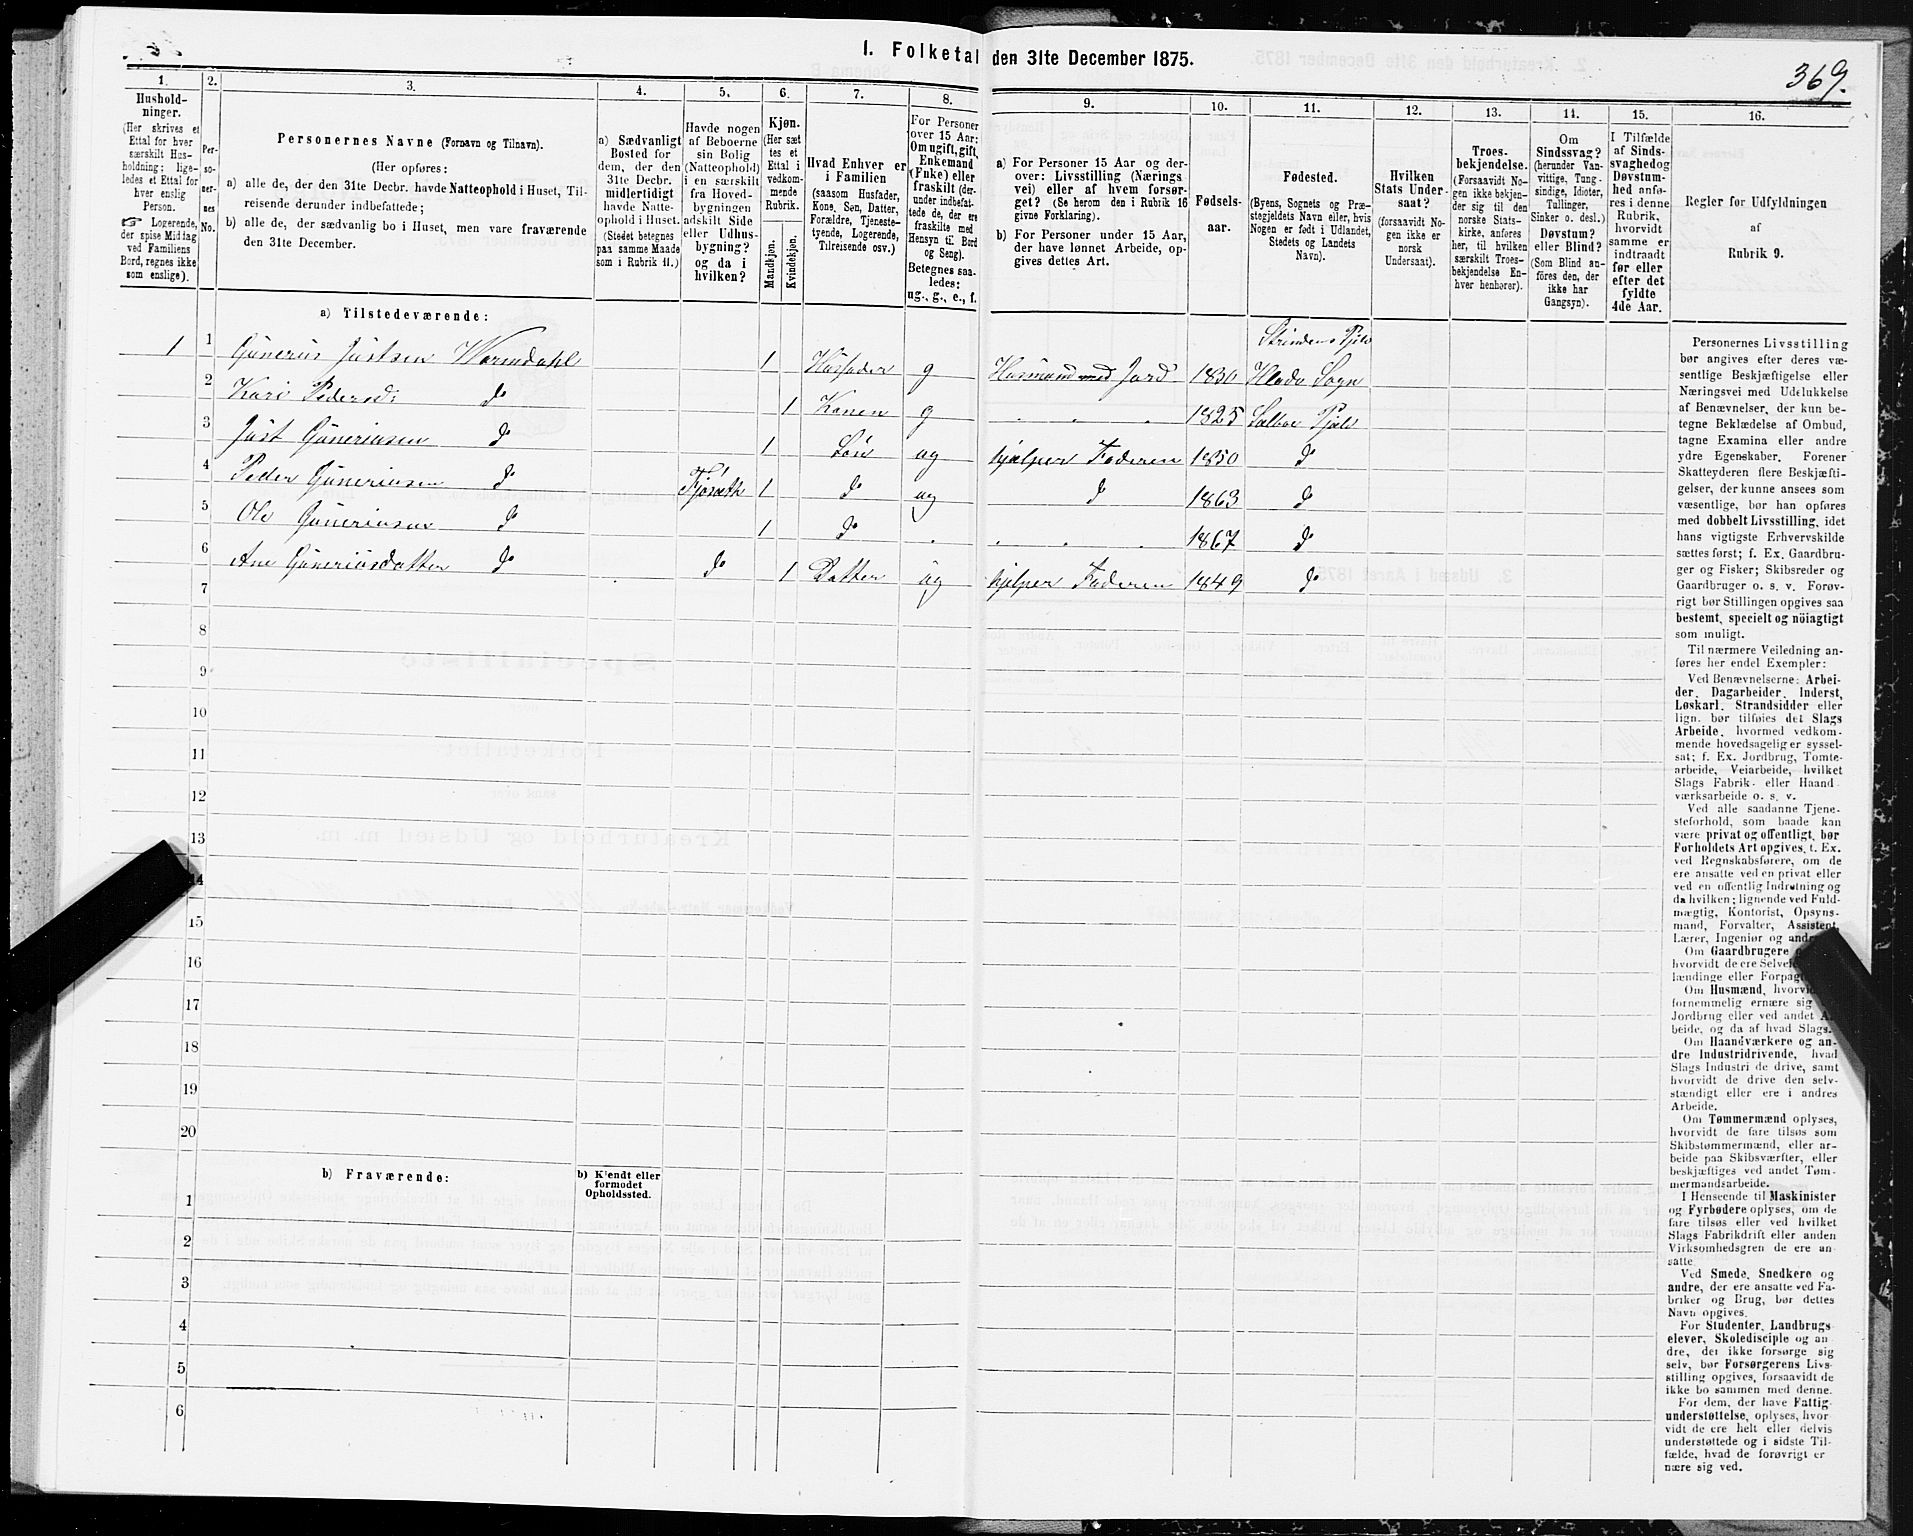 I. Folketal den 31te December 1875.
369.
1. 2. 3. 4. 5. 6. 7. 8. 9. 10. 11. 12. 13. 14. 15. 16.
Hushold-
ninger.
(Her skrives et
Ettal for hver
særskilt Hus-
holdning; lige-
ledes et Ettal for
hver enslig
Person.
☞ Logerende,
der spise Middag
ved Familiens
Bord, regnes ikke
som enslige).
Per-
so-
ner-
nes
No.
Personernes Navne (Fornavn og Tilnavn).
(Her opføres:
a) alle de, der den 31te Decbr. havde Natteophold i Huset, Til-
reisende derunder indbefattede;
b) alle de, der sædvanlig bo i Huset, men vare fraværende
den 31te December.
a) Sædvanligt
Bosted for
dem, der den
31te Decbr.
midlertidigt
havde Natte-
ophold i Huset.
(Stedet betegnes
paa samme Maade
som i Rubrik 11.)
Havde nogen
af Beboerne
sin Bolig
(Natteophold)
i en særskilt
fra Hoved-
bygningen
adskilt Side
eller Udhus-
bygning?
og da i
hvilken?
Kjøn.
(Her sæt
tes et
Ettal i
vedkom-
mende
Rubrik.
Mandkjøn.
Kvindekjøn.
Hvad Enhver er
i Familien
(saasom Husfader,
Kone, Søn, Datter,
Forældre, Tjeneste-
tyende, Logerende,
Tilreisende osv.)
For Personer
over 15 Aar:
Om ugift, gift,
Enkemand
(Enke) eller
fraskilt (der-
under indbefat-
tede de, der ere
fraskilte med
Hensyn til Bord
og Seng).
Betegnes saa-
ledes:
ug., g., e., f.
a) For Personer 15 Aar og der-
over: Livsstilling (Nærings
vei) eller af hvem forsør-
get? (Se herom den i Rubrik 16
givne Forklaring).
b) For Personer under 15 Aar,
der have lønnet Arbeide, op-
gives dettes Art.
Fødsels-
aar.
Fødested.
(Byens, Sognets og Præ-
stegjeldets Navn eller, hvis
Nogen er født i Udlandet,
Stedets og Landets
Navn).
Hvilken
Stats Under-
saat?
(forsaavidt No-
gen ikke er
norsk
Undersaat).
Troes-
bekjendelse.
(Forsaavidt No-
gen ikke bekjen-
der sig til den
norske Stats-
kirke, anføres
her, til hvilken
særskilt Troes-
bekjendelse En-
hver henhører).
Om
Sindssvag?
(herunder Van-
vittige, Tung-
sindige, Idioter,
Tullinger,
Sinker o. desl.)
Døvstum?
eller Blind?
(Som Blind an-
føres den, der
ikke har
Gangsyn).
I Tilfælde
af Sinds-
svaghed og
Døvstum-
hed anfø-
res i denne
Rubrik,
hvorvidt
samme er
indtraadt
før eller
efter det
fyldte
4de Aar.
Regler for Udfyldningen
af
Rubrik 9.
a) Tilstedeværende:
1 1 Gunerius Justsen Wormdahl 1 Husfader g Husmand med Jord 1830 Strindens Pjeld Hlade Sogn
2 Kari Pedersd: do 1 Konen g " " " 1825 Selboe Pjeld
3 Just Guneriusen do 1 Søn ug hjelper Faderen 1850 do
4 Peder Guneriusen do 1 do ug do 1863 do
5 Ole Guneriusen do 1 do " " " " 1867 do
6 Ane Guneriusdatter do do 1 Datter ug hjelper Faderen 1849 do
7
8
9
10
11
12
13
14
15
16
17
18
19
20
b) Fraværende:
b) Kjendt eller
formodet
Opholdssted.
1
2
3
4
5
6
Personernes Livsstilling
bør angives efter deres væ-
sentlige Beskjæftigelse eller
Næringsvei med Udelukkelse
af Benævnelser, der kun be-
tegne Beklædelse af Ombud,
tagne Examina eller andre
ydre Egenskaber. Forener
Skatteyderen flere Beskjæfti-
gelser, der kunne ansees som
væsentlige, bør han opføres
med dobbelt Livsstilling, idet
hans vigtigste Erhvervskilde
sættes først; f. Ex. Gaardbru-
ger og Fisker; Skibsreder og
Gaardbruger o. s. v. Forøv-
rigt bør Stillingen opgives saa
bestemt, specielt og nöiagtigt
som muligt.
Til nærmere Veiledning an-
føres her endel Exempler:
Ved Benævnelserne: Arbei-
der, Dagarbeider, Inderst,
Løskarl, Strandsidder eller
lign. bør tilføies det Slags
Arbeide, hvormed vedkom-
mende hovedsagelig er syssel-
sat; f. Ex. Jordbrug, Tomte-
arbeide, Veiarbeide, hvilket
Slags Fabrik- eller Haand
værksarbeide o. s. v.
Ved alle saadanne Tjene-
steforhold, som baade kan
være privat og offentligt, bør
Forholdets Art opgives, t. Ex.
ved Regnskabsførere, om de
ere ansatte ved en privat eller
ved en offentlig Indretning og
da hvilken; lignende ved Fuld-
mægtig, Kontorist, Opsyns-
mand, Forvalter, Assistent,
Lærer, Ingeniør og
Om Gaardbrugere
hvorvidt de ere
lændinge eller
Om Husmænd,
fornemmelig ernære sig
Jordbrug eller ved andet
beide, og da af hvad Slags.
Om Haandværkere og an-
dre Industridrivende, hvad
Slags Industri de drive, samt
hvorvidt de drive den selv-
stændigt eller ere i andres
Arbeide.
Om Tømmermænd oplyses,
hvorvidt de fare tilsøs som
Skibstømmermænd, eller ar-
beide paa Skibsværfter, eller
beskjæftiges ved andet Tøm-
mermandsarbeide.
I Henseende til Maskinister
og Fyrbødere oplyses, om de
fare tilsøs eller ved hvilket
Slags Fabrikdrift eller anden
Virksomhedsgren de ere an-
satte
Ved Smede, Snedkere og
andre, der ere ansatte ved Fa-
briker og Brug, bør dettes
Navn opgives.
For Studenter, Landbrugs
elever, Skoledisciple og an-
dre, der ikke forsørge sig
selv, bør Forsørgerens Livs-
stilling opgives, forsaavidt de
ikke bo sammen med denne.
For dem, der have Fattig-
understøttelse, oplyses, hvor-
vidt de ere helt eller delvis
understøttede og i sidste Til-
fælde, hvad de forøvrigt er
nære sig ved.